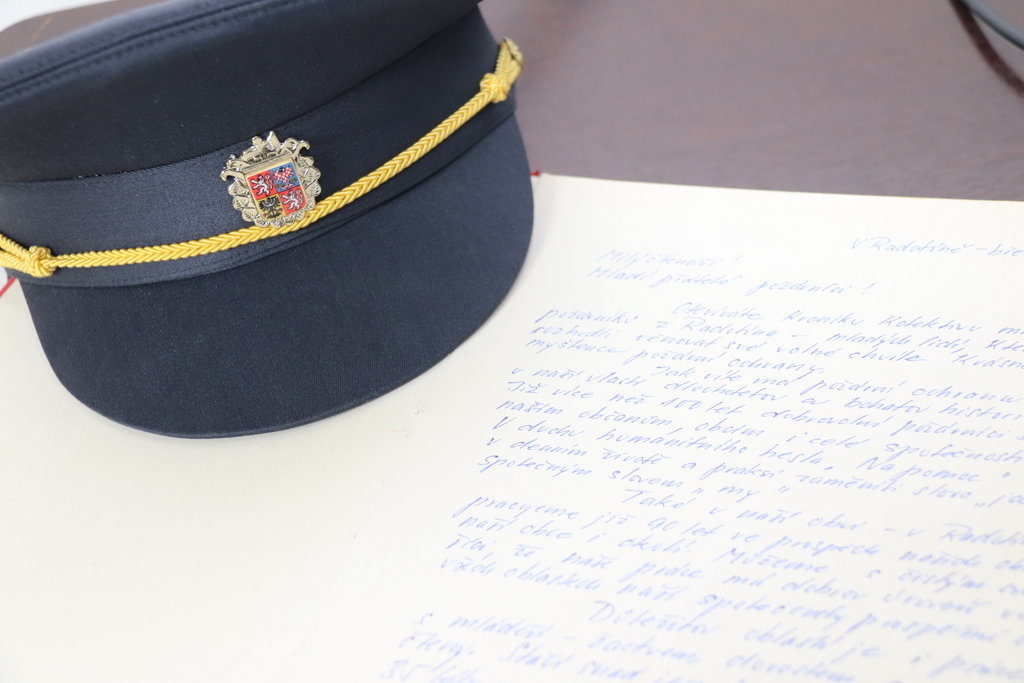 V Radotíně - bře
Milí čtenáři!
Mladí přátelé požárníci!
Otevíráte kroniku kolektivu
požárníků z Radotína - mladých lidí, kteř
rozhodli věnovat své volné chvíle krásné
myšlence požární ochrany.
Jak víte má požární ochrana
v naší vlasti dlouholetou a bohatou histori
Již více než 100 let dobrovolní požárníci
našim občanům, obcím i celé společnosti
V duchu humanitního hesla „Na pomoc
v denním životě a praksi zaměnit slovo „já
společným slovem „my"
Také v naší obci - v Radotín
pracujeme již 90 let ve prospěch našich ob
naší obce i okolí. Můžeme s čistým
říci že naše práce má dobrou úroveň
všech oblastech naší společensky prospěšné
Důležitou oblastí je i práce
s mládeží - žactvem, dorostem
35 léty